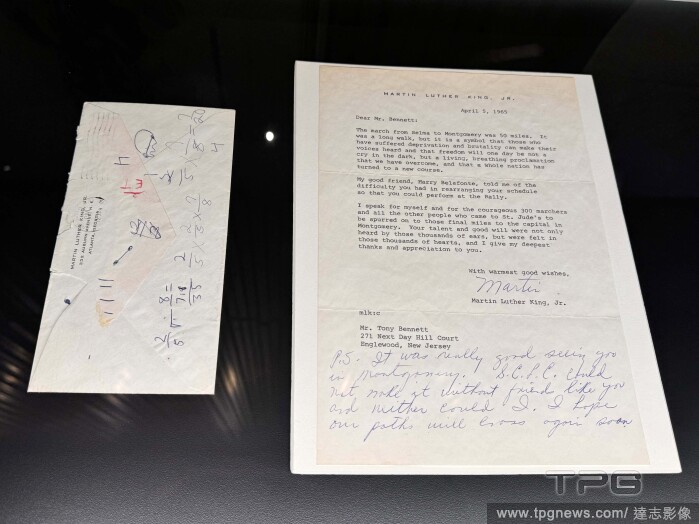 MARTIN LUTHER KING, JR.
ATLANTA, GEORGIA
MARTIN LUTHER KING, JR.
April 5, 1965
Dear Mr. Bennett:
The march from Selma to Montgomery was 50 miles. It
was a long walk, but it is a symbol that those who
have suffered deprivation and brutality can make their
voices heard and that freedom will one day be not a
cry in the dark, but a living, breathing proclamation
that we have overcome, and that a whole nation has
turned to a new course.
My good friend, Harry Belafonte, told me of the
difficulty you had in rearranging your schedule
so that you could perform at the Rally.
I speak for myself and for the courageous 300 marchers
and all the other people who came to St. Jude's to
be spurred on to those final miles to the capital in
Montgomery. Your talent and good will were not only
heard by those thousands of ears, but were felt in
those thousands of hearts, and I give my deepest
thanks and appreciation to you.
With warmest good wishes,
Martin
Martin Luther King, Jr.
mlk:c
Mr. Tony Bennett
271 Next Day Hill Court
Englewood, New Jersey
P.S. It was really good seeing you
in Montgomery. S.C.L.C. could
not make it without friend like you
and neither could I. I hope
our paths will cross again soon
TPG
www.tpgnews.com / 達志影像